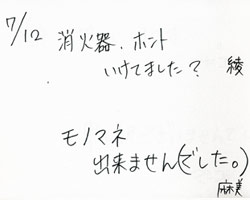 7/12 消火器、ホント
いけてました？ 綾
モノマネ
出来ません(でした。)
麻美